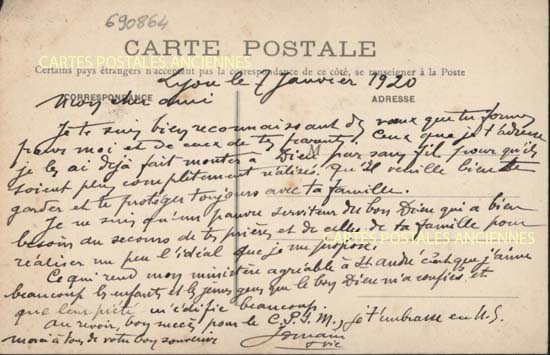 690864
CARTE POSTALE
CARTES POSTALES ANCIENNES
Certains pays étrangers n'acceptent pas la correspondance de ce côté, se renseigner à la Poste
Lyon le 7 Janvier 1920
CORRESPONDANCE
ADRESSE
Mon cher ami
Je te suis bien reconnaissant des vœux que tu formes
pour moi et de ceux de tes parents. Ceux que je t'adresse
je les ai déjà fait monter à Dieu par sans fil pour qu'ils
soient plus complètement réalisés. Qu'il veuille bien te
garder et te protéger toujours avec ta famille.
Je ne suis qu'un pauvre serviteur du bon Dieu qui a bien
besoin du secours de tes prières et de celles de ta famille pour
réaliser un peu l'idéal que je me propose.
CARTES POSTALES ANCIENNES
Ce qui rend mon ministère agréable à St André c'est que j'aime
beaucoup les enfants et les jeunes gens que le bon Dieu m'a confiés, et
que leur piété m'édifie beaucoup.
Au revoir, bon succès pour le je t'embrasse en N.S.
merci à tous de votre bon souvenir